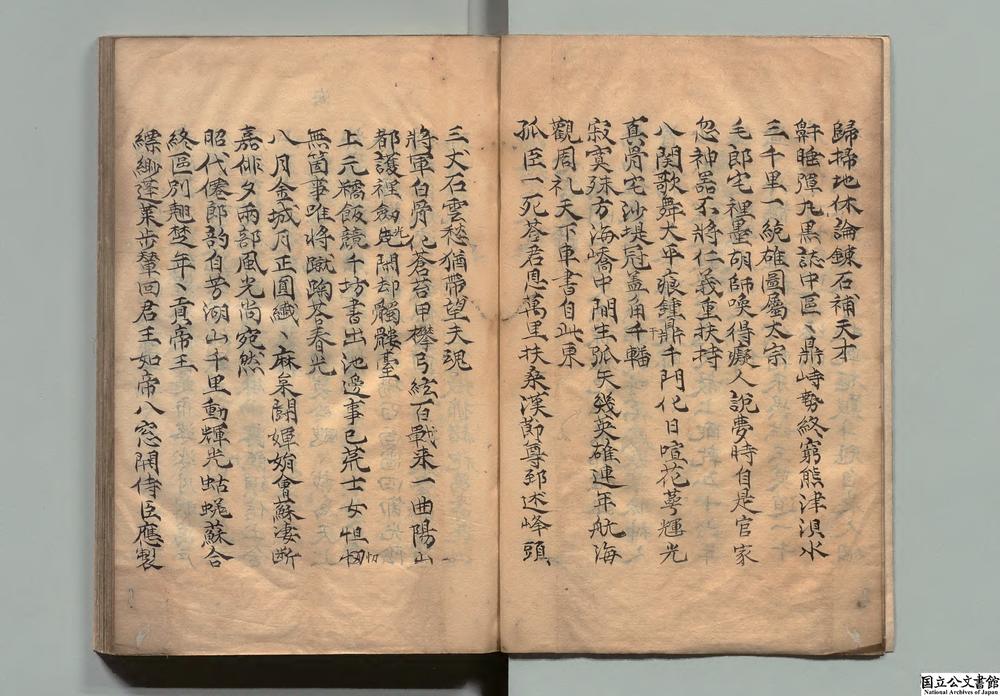 歸掃地休論鍊石補天才
斛瞻彈丸黒誌中區〻鼎峙勢終窮熊津浿水
三千里一統雄圖屬太宗
毛郎宅裡墨胡師喚得癡人說夢時自是官家
忽神器不將仁義重扶持
八関歌舞大平痕鍾鼎千門化日喧花萼輝光
真骨宅沙堤冠盖角千轓
寂寞殊方海嶠中間生弧矢幾英雄連年航海
觀周礼天下車書自此東
孤臣一死荅君恩萬里扶桑漢節尊鄈述峰頭
三丈石雲愁猶帶望夫魂
將軍白骨化蒼苔甲欅弓絃百戰来一曲陽山
都護裡劔光閑却髑髏臺
上元糯飯競千坊書出池邊事已荒士女怛忉
無箇事唯將蹴踘荅春光
八月金城月正圓纖〻麻枲鬪嬋娟會蘇凄断
嘉俳夕兩部風光尚宛然
昭代僊郎韵自芳湖山千里動輝光蛣蜣蘇合
終區別趐楚年〻貢帝王
縹緲蓬莱步輦回君王如帝八窓開侍臣應製
国立公文書館
National Archives of Japan